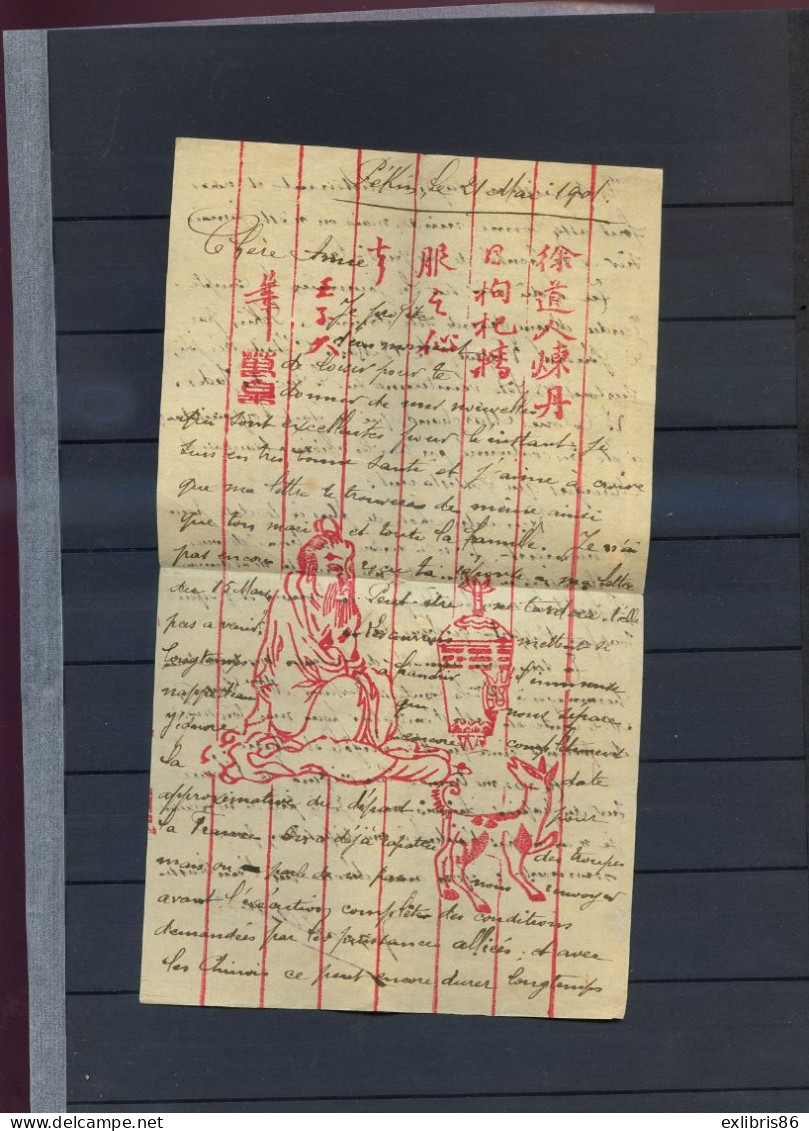 Pékin, le 21 Mai 1901.
Chère Amie
Je profite
d'un moment
de loisir pour te
donner de mes nouvelles
qui sont excellentes pour l'instant. Je
suis en très bonne santé et j'aime à croire
que ma lettre te trouvera de même ainsi
que ton mari et toute la famille. Je n'ai
pas encore reçu ta réponse a ma lettre
du 15 Mars. Peut être ne tardera t'elle
pas a venir. les courriers mettent si
longtemps a franchir l'immense
que nous sépare.
J'ignore encore complètement
la date
approximative du départ pour
la France. On a déjà rapatrié des troupes
mais on parle de ne pas nous renvoyer
avant l'exécution complète des conditions
demandées par les puissances alliées, et avec
les Chinois ce peut encore durer longtemps
徐道人煉丹
日枸杞精
服之仙
去
壬子大
華
exlibris86